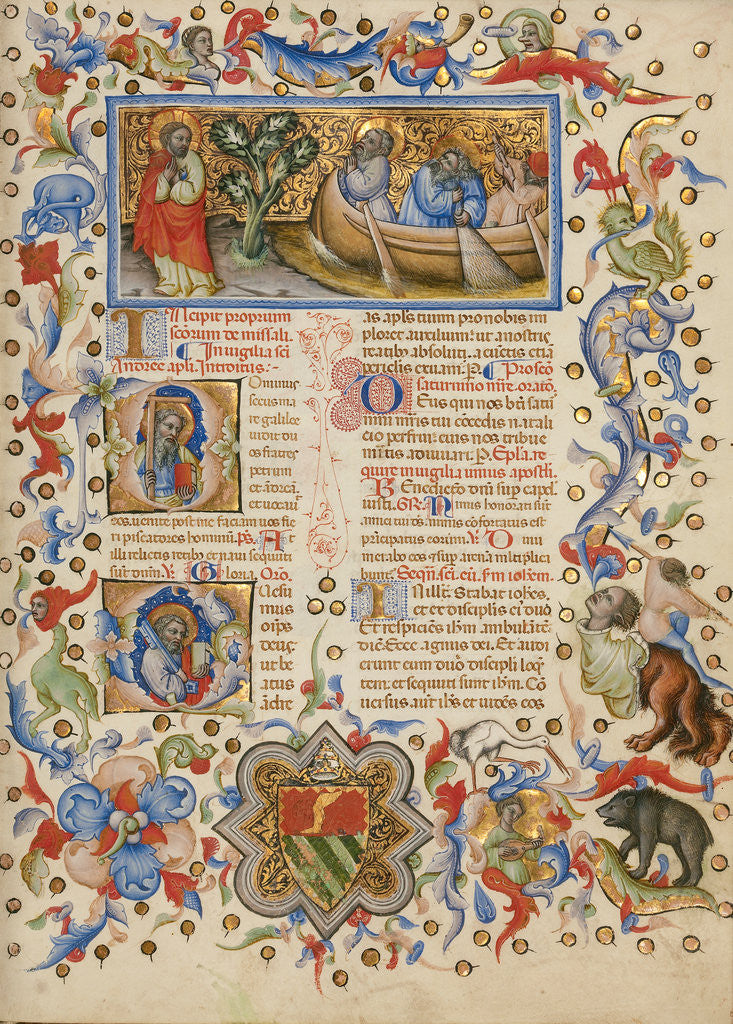 Incipit proprium
scorum de missali.
In vigilia sci
Andree apli. Introitus:-
Dominus
secus ma
re galilee
vidit du
os fratres
petrum
et andreā
et vocavit
eos. venite post me faciam vos fie
ri piscatores hominū. ps. 
illi relictis retibȝ et navi secuti
sunt dnm. V. Gloria. Oro.
Quesu
mus
oīps
deus
ut be
atus
andre
as apls tuum pro nobis im
ploret auxilium: ut a nostris
reatibȝ absoluti. a cunctis etiā
periclis exuam. P. Pro sco
saturnino mre. orato.
Deus qui nos bti satu
nini mris tui cōcedis natali
cio perfrui: eius nos tribue
mitis adiuvari. P. Epla. re
quire in vigilia unius apostli.
Benedictio dni sup caput
iusti. GR. Nimis honorati sūt
amici tui ds: nimis cōfortatus est
principatus eorum. V. Di nu
merabo eos et sup arenā multiplica
buntur. Seqn. sci. eū. fm iohem.
In illo t. Stabat iohes.
et ex discipulis ei duo
Et respiciēs ihm ambulātē
dic. Ecce agnus dei. Et audi
erunt eum duo discipli loq
tem. et secuti sunt ihm. Cō
versus aut ihs et vidēs eos